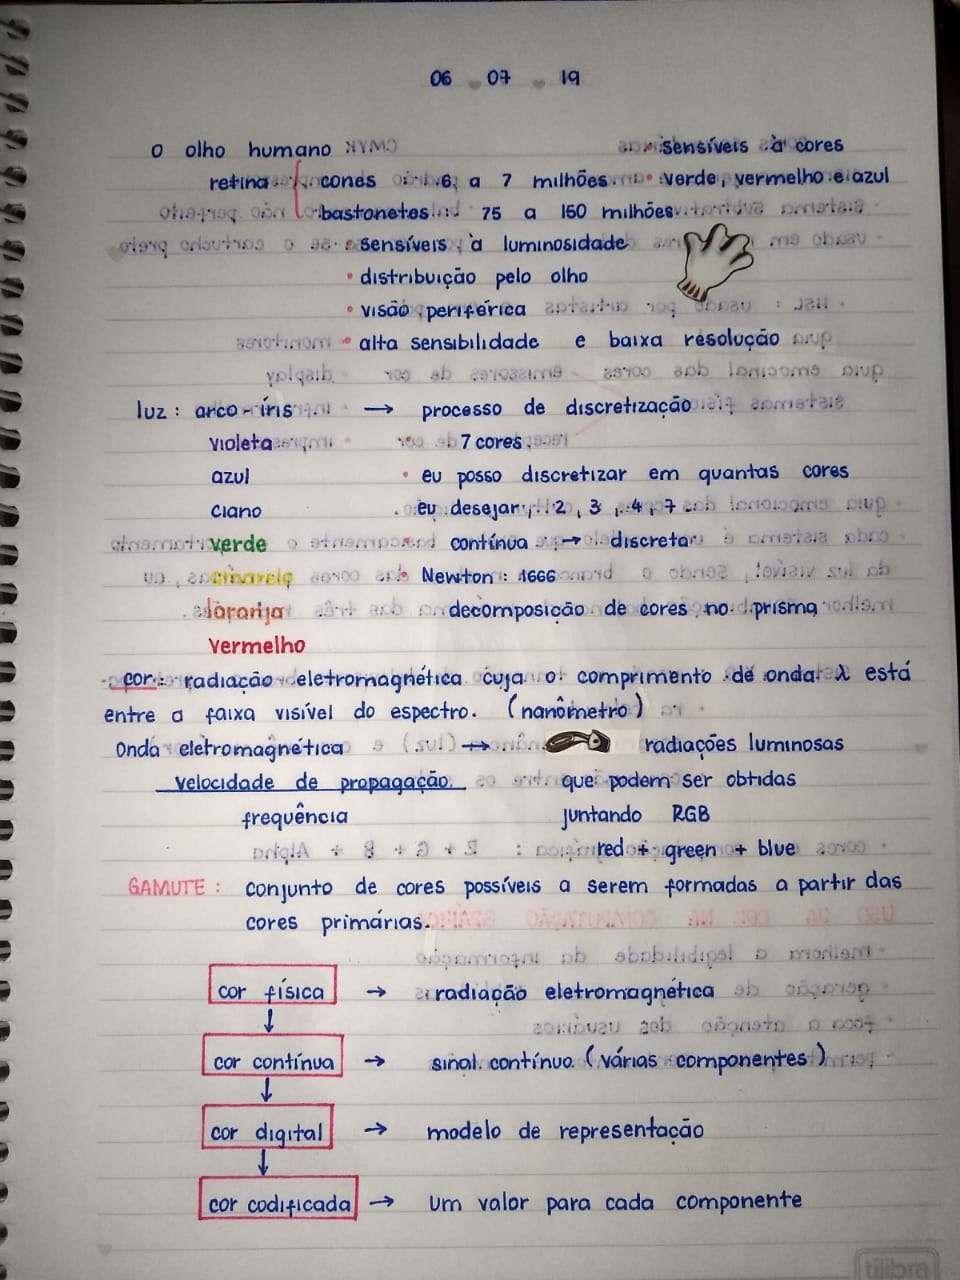 06 07 19
o olho humano • sensíveis à cores
retina cones 6 a 7 milhões • verde, vermelho e azul
bastonetes 75 a 150 milhões
• sensíveis à luminosidade
• distribuição pelo olho
• visão periférica
• alta sensibilidade e baixa resolução
luz: arco-íris → processo de discretização
violeta • 7 cores.
azul • eu posso discretizar em quantas cores
ciano eu desejar, 2, 3, 4, 7
verde • contínua → discreta
amarelo • Newton: 1666
laranja decomposição de cores no prisma
vermelho
cor: radiação eletromagnética cuja o comprimento de onda λ está
entre a faixa visível do espectro. (nanômetro)
Onda eletromagnética → radiações luminosas
velocidade de propagação que podem ser obtidas
frequência juntando RGB
red + green + blue
GAMUTE: conjunto de cores possíveis a serem formadas a partir das
cores primárias.
cor física → radiação eletromagnética
↓
cor contínua → sinal contínuo (várias componentes)
↓
cor digital → modelo de representação
↓
cor codificada → um valor para cada componente
tilibra